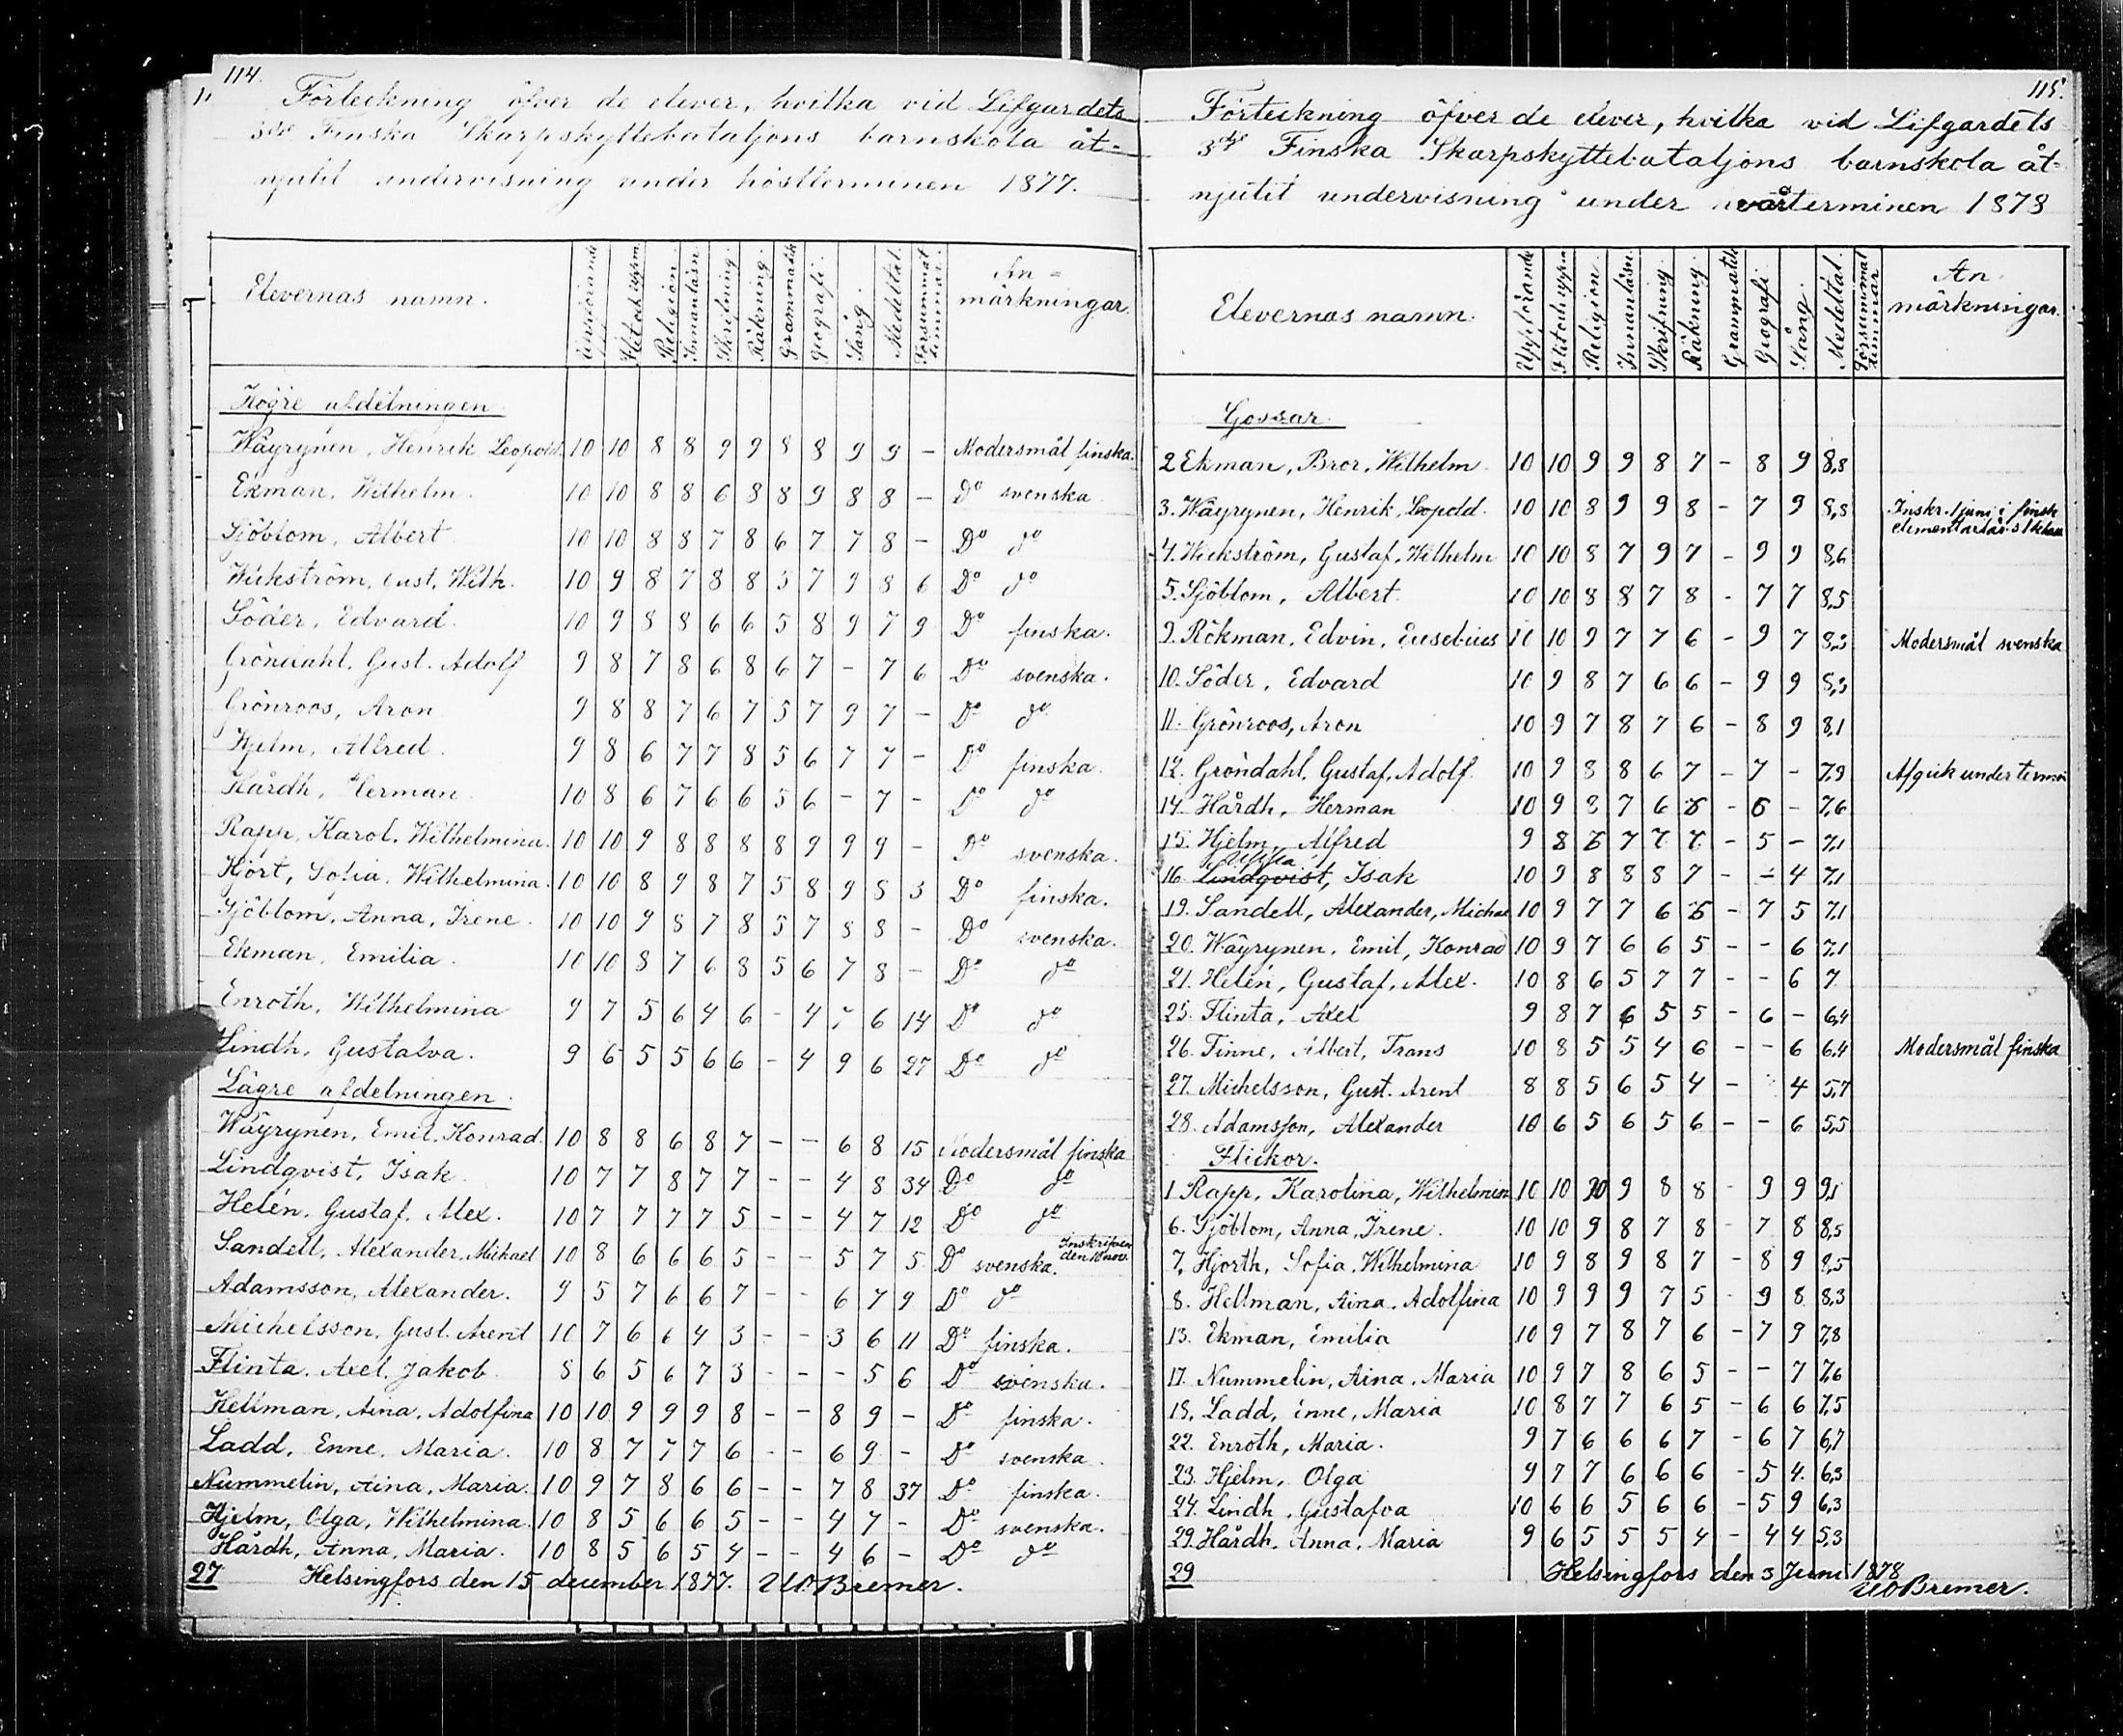 114.
Förteckning öfver de elever, hvilka vid Lifgardets
3dje Finska Skarpskyttebataljons barnskola åt-
njutit undervisning under höstterminen 1877.
Elevernas namn. Uppförande Flit och uppm. Religion. Innanläsn. Skrifning Räkning. Grammatik Geografi. Sång. Medeltal. Försummat timmar. An-
märkningar.
Högre afdelningen.
Wäyrynen, Henrik Leopold. 10 10 8 8 9 9 8 8 9 9 – Modersmål finska.
Ekman, Wilhelm. 10 10 8 8 6 8 8 9 8 8 – Do svenska
Sjöblom, Albert 10 10 8 8 7 8 6 7 7 8 – Do do
Wickström, Gust. Wilh. 10 9 8 7 8 8 5 7 9 8 6 Do do
Söder, Edvard. 10 9 8 8 6 6 5 8 9 7 9 Do finska.
Gröndahl. Gust. Adolf 9 8 7 8 6 8 6 7 – 7 6 Do svenska.
Grönroos, Aron 9 8 8 7 6 7 5 7 9 7 – Do do
Hjelm, Alfred. 9 8 6 7 7 8 5 6 7 7 – Do finska.
Hårdh, Herman 10 8 6 7 6 6 5 6 – 7 – Do do
Rapp, Karol. Wilhelmina. 10 10 9 8 8 8 8 9 9 9 – Do svenska.
Hjort, Sofia. Wilhelmina. 10 10 8 9 8 7 5 8 9 8 3 Do finska.
Sjöblom, Anna, Irene. 10 10 9 8 7 8 5 7 8 8 – Do svenska.
Ekman, Emilia. 10 10 8 7 6 8 5 6 7 8 – Do do
Enroth, Wilhelmina 9 7 5 6 4 6 – 4 6 14 Do do
Lindh, Gustafva. 9 6 5 5 6 6 – 4 9 6 27 Do do
Lägre afdelningen.
Wäyrynen, Emil, Konrad. 10 8 8 6 8 7 – – 6 8 15 Modersmål finska
Lindqvist, Isak 10 7 7 8 7 7 – – 4 8 34 Do do
Helén. Gustaf. Alex. 10 7 7 7 7 5 – – 4 7 12 Do do
Sandell, Alexander. Mikael 10 8 6 6 6 5 – – 5 7 5 Do svenska. Inskrifven den 10 nov.
Adamsson, Alexander. 9 5 7 6 6 7 – – 6 7 9 Do do
Michelsson, Gust. Arent 10 7 6 6 4 3 – – 3 6 11 Do finska.
Flinta. Axel. Jakob. 8 6 5 6 7 3 – – – 5 6 Do svenska.
Hellman, Aina, Adolfina 10 10 9 9 9 8 – – 8 9 – Do finska.
Ladd, Enne, Maria. 10 8 7 7 7 6 – – 6 9 – Do svenska.
Nummelin, Aina, Maria. 10 9 7 8 6 6 – – 7 8 37 Do finska.
Hjelm, Olga, Wilhelmina. 10 8 5 6 6 5 – – 4 7 – Do svenska.
Hårdh, Anna, Maria. 10 8 5 6 5 4 – – 4 6 – Do do
27 Helsingfors den 15 december 1877. U O Bremer.
115.
Förteckning öfver de elever, hvilka vid Lifgardets
3dje Finska Skarpskyttebataljons barnskola åt-
njutit undervisning under vårterminen 1878
Elevernas namn. Uppförande Flit och uppm Religion. Innanläsn. Skrifning. Räkning. Grammatik Geografi. Sång. Medeltal. Försummat timmar An
märkningar.
Gossar.
2 Ekman, Bror, Wilhelm. 10 10 9 9 8 7 – 8 9 8,8
3. Wäyrynen, Henrik, Leopold. 10 10 8 9 9 8 – 7 9 8,8 Inskr. 1 juni i finsk elementarlär.s 1 klass
4. Wickström, Gustaf, Wilhelm 10 10 8 7 9 7 – 9 9 8,6
5. Sjöblom, Albert. 10 10 8 8 7 8 – 7 7 8,5
9. Rökman, Edvin, Eusebius 10 10 9 7 7 6 – 9 7 8,3 Modersmål svenska
10. Söder, Edvard 10 9 8 7 6 6 – 9 9 8,3
11. Grönroos, Aron 10 9 7 8 7 6 – 8 9 8,1
12. Gröndahl, Gustaf, Adolf. 10 9 8 8 6 7 – 7 – 7,9 Afgick under termin
14. Hårdh, Herman 10 9 8 7 6 6 – 6 – 7,6
15. Hjelm, Alfred 9 8 6 7 7 7 – 5 – 7,1
16. Lindqvist, Isak 10 9 8 8 8 7 – – 4 7,1
19. Sandell, Alexander, Michae 10 9 7 7 6 6 – 7 5 7,1
20. Wäyrynen, Emil, Konrad 10 9 7 6 6 5 – – 6 7,1
21. Helén, Gustaf, Alex. 10 8 6 5 7 7 – – 6 7
25. Flinta, Axel 9 8 7 6 5 5 – 6 – 6,4
26. Finne, Albert, Frans 10 8 5 5 4 6 – – 6 6,4 Modersmål finska
27. Michelsson, Gust. Arent 8 8 5 6 5 4 – 4 5,7
28. Adamsson, Alexander 10 6 5 6 5 6 – – 6 5,5
Flickor.
1 Rapp, Karolina, Wilhelmin 10 10 10 9 8 8 – 9 9 9,1
6. Sjöblom, Anna, Irene. 10 10 9 8 7 8 – 7 8 8,5
7. Hjorth, Sofia, Wilhelmina 10 9 8 9 8 7 – 8 9 8,5
8. Hellman, Aina. Adolfina 10 9 9 9 7 5 – 9 8 8,3
13. Ekman, Emilia 10 9 7 8 7 6 – 7 9 7,8
17. Nummelin, Aina, Maria 10 9 7 8 6 5 – – 7 7,6
18. Ladd, Enne, Maria 10 8 7 7 6 5 – 6 6 7,5
22. Enroth, Maria. 9 7 6 6 6 7 – 6 7 6,7
23. Hjelm, Olga 9 7 7 6 6 6 – 5 4. 6,3
24. Lindh, Gustafva 10 6 6 5 6 6 – 5 9 6,3
29. Hårdh, Anna, Maria 9 6 5 5 5 4 – 4 4 5,3
29 Helsingfors den 3 Juni 1878
U O Bremer.